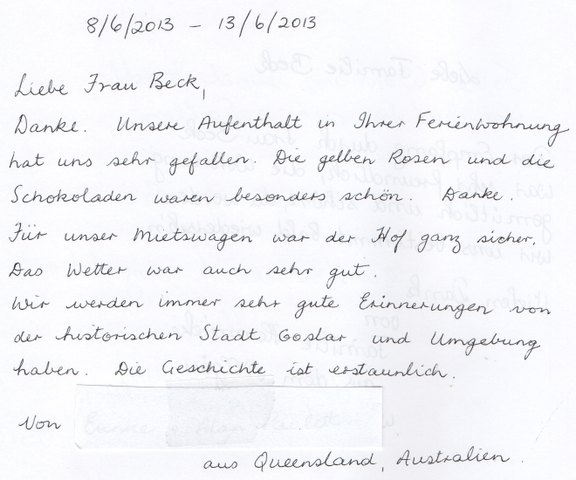 8/6/2013 - 13/6/2013
Liebe Frau Beck,
Danke. Unsere Aufenthalt in Ihrer Ferienwohnung
hat uns sehr gefallen. Die gelben Rosen und die
Schokoladen waren besonders schön. Danke.
Für unser Mietswagen war der Hof ganz sicher.
Das Wetter war auch sehr gut.
Wir werden immer sehr gute Erinnerungen von
der historischen Stadt Goslar und Umgebung
haben. Die Geschichte ist erstaunlich.
Von
aus Queensland, Australien.